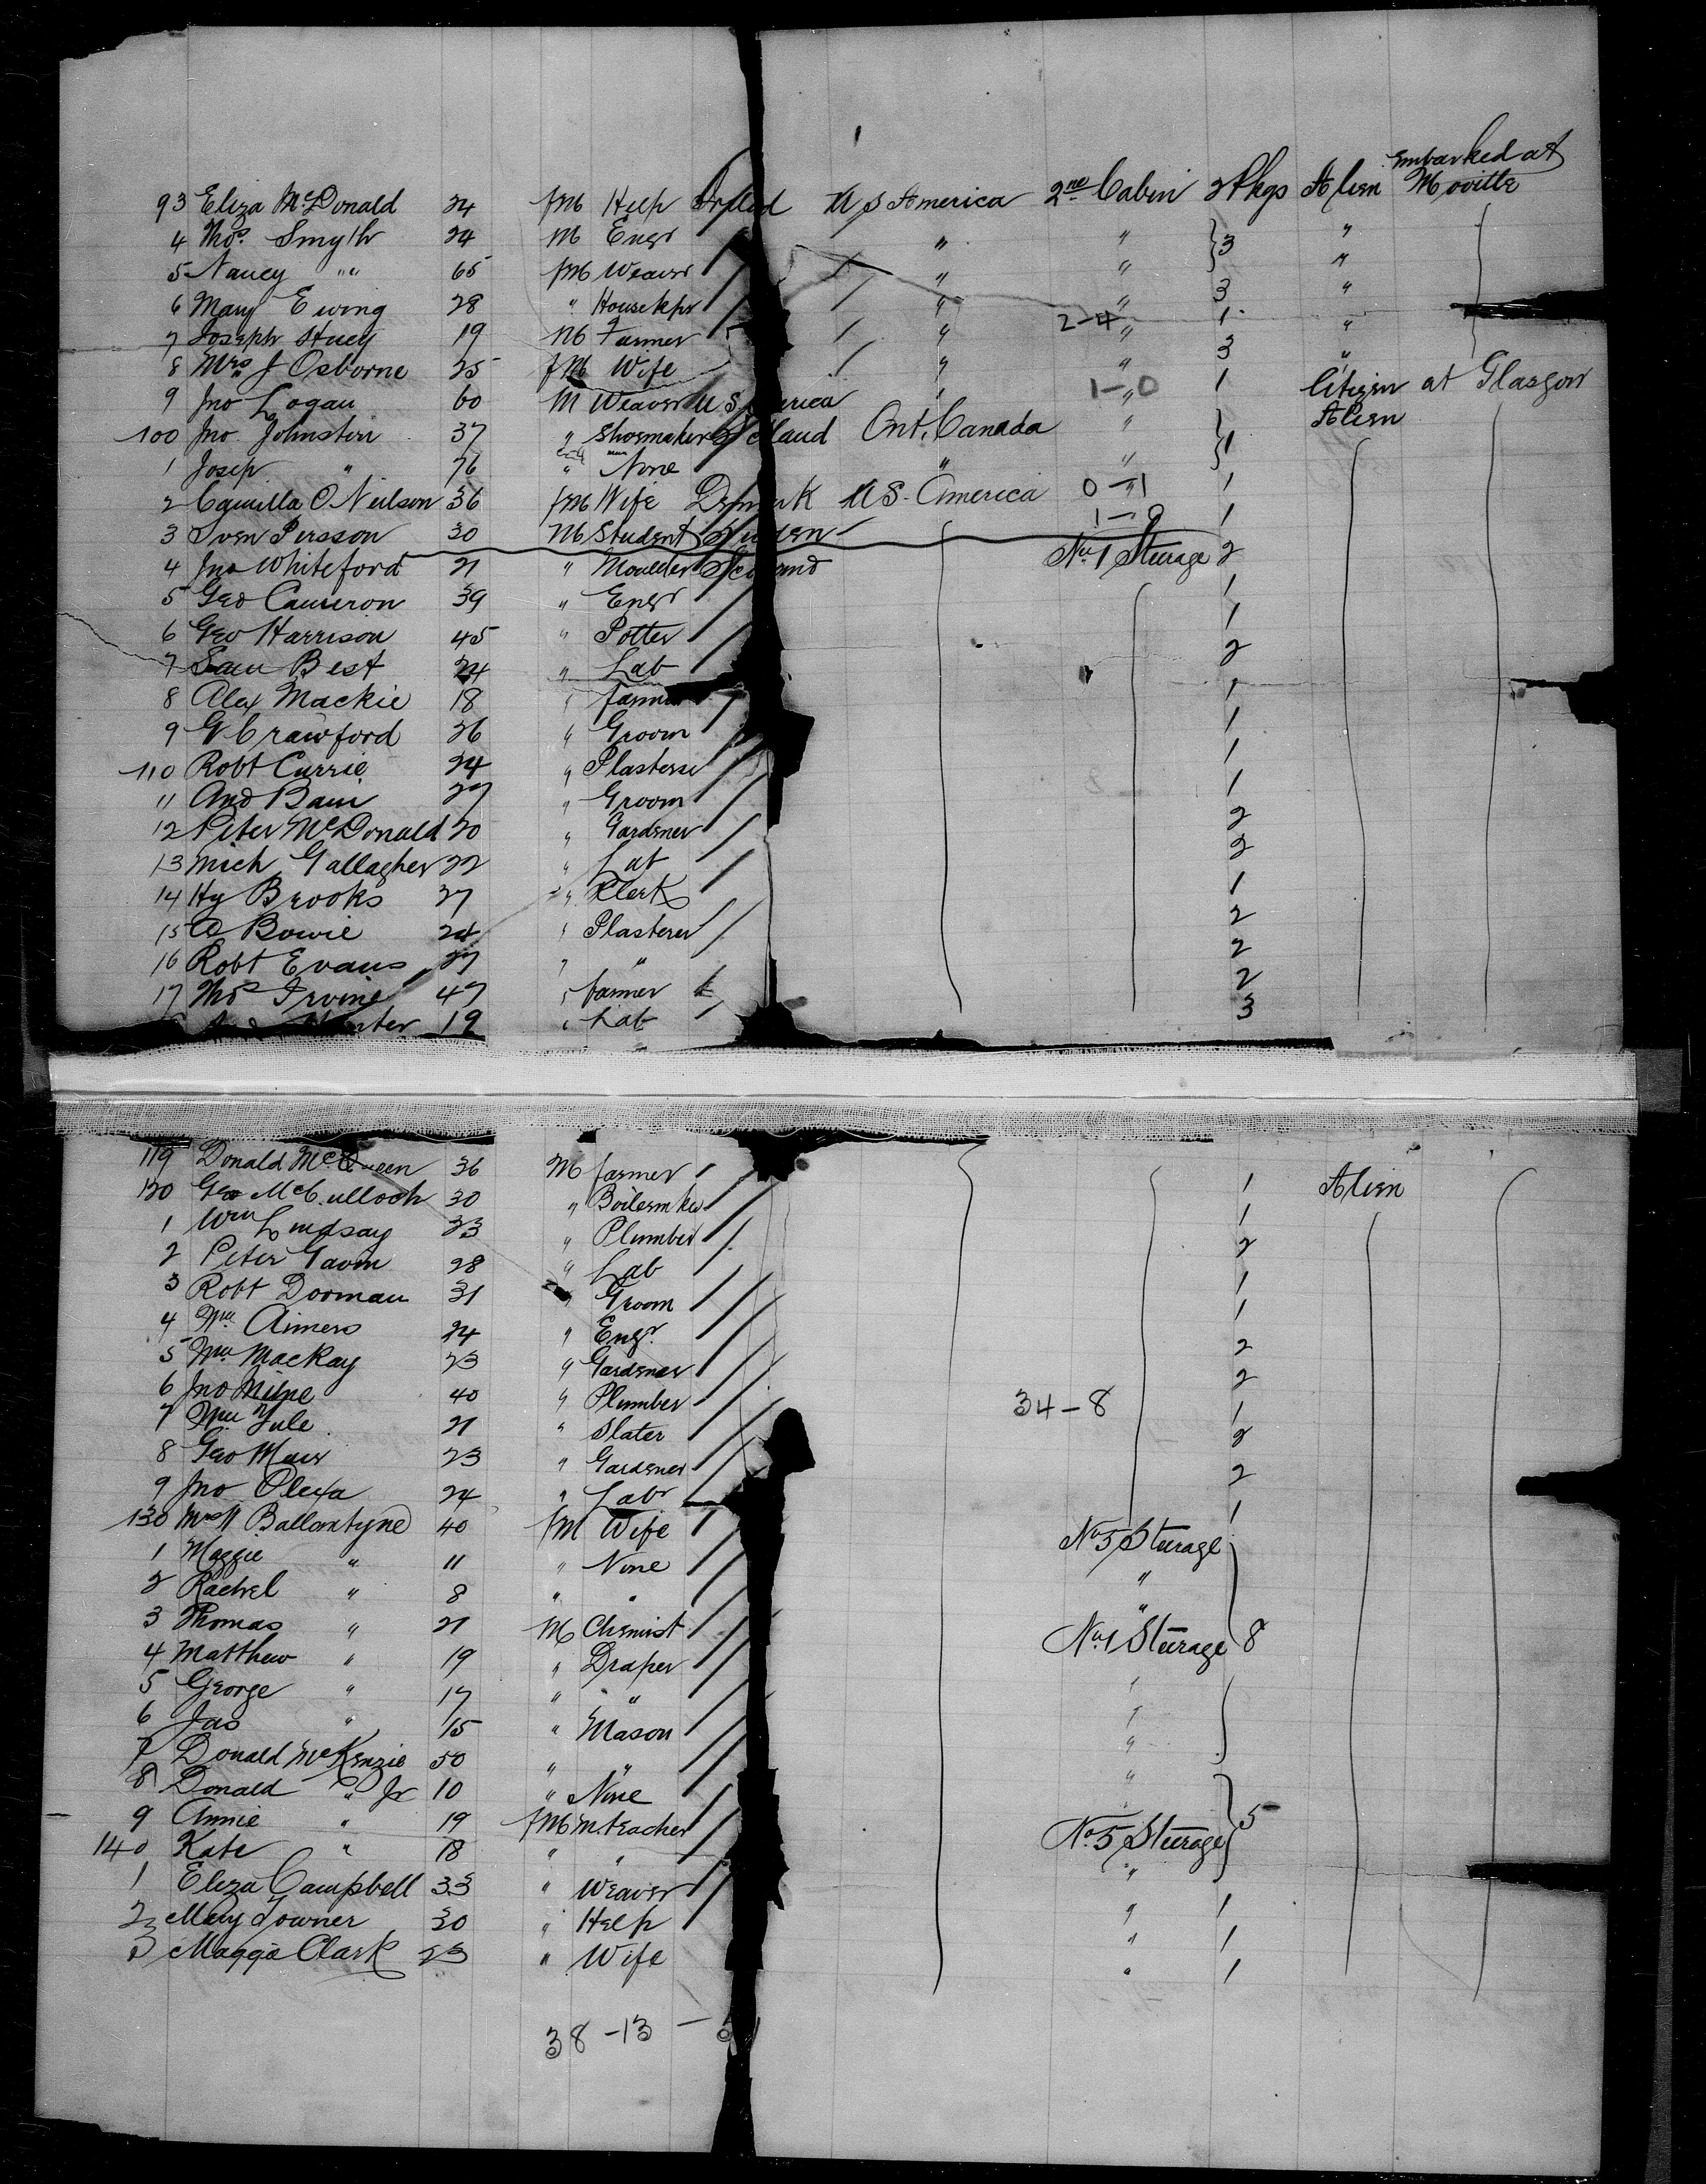 Embarked at
93 Eliza McDonald 24 fM Help Ireland U S America 2nd Cabin 2 Pkgs Alien Moville
4 Thos. Smyth 24 M Engr " " } 3 "
5 Nancy "" 65 fM Weaver " " "
6 Mary Ewing 28 " Housekpr " " 3 "
7 Joseph Huey 19 M Farmer " 2-4 " 1 "
8 Mrs J Osborne 25 fM Wife " " 3 "
9 Jno Logan 60 M Weaver U S America 1-0 " 1 Citizen at Glasgow
100 Jno. Johnston 37 " Shoemaker Ont. Canada " } 1 Alien
1 Josep " 76 " None " "
2 Camilla O Neilson 36 fM Wife Denmark U S. America 0-1 " 1
3 Sven Persson 30 M Student Sweden 1-0 1
4 Jno Whiteford 21 " Moulder Scotland No. 1 Steerage 2
5 Geo Cameron 39 " Engr 1
6 Geo Harrison 45 " Potter 1
7 Sam Best 24 " Lab 2
8 Alex Mackie 18 " farmer 1
9 G Crawford 26 " Groom 1
110 Robt Currie 24 " Plasterer 1
11 And Bain 27 " Groom 1
12 Peter McDonald 20 " Gardener 2
13 Mich Gallagher 22 " Lab 2
14 Hy Brooks 27 " Clerk 1
15 A Bowie 24 " Plasterer 2
16 Robt Evans 27 " " 2
17 Thos Irvine 47 " farmer 2
Hunter 19 " Lab 3
119 Donald McQueen 36 M farmer 1 Alien
120 Geo McCulloch 30 " Boilermkr 1
1 Wm Lindsay 33 " Plumber 2
2 Peter Gavin 28 " Lab 1
3 Robt Dorman 31 " Groom 1
4 Wm. Aimers 24 " Engr. 2
5 Wm. MacKay 23 " Gardener 2
6 Jno Milne 40 " Plumber 34-8 1
7 Wm. Yule 21 " Slater 2
8 Geo Mair 23 " Gardener 2
9 Jno Olexa 24 " Labr 1
130 Mrs Ballantyne 40 fM Wife No 5 Steerage
1 Maggie " 11 " None "
2 Rachel " 8 " " "
3 Thomas " 21 M Chemist No. 1 Steerage 8
4 Matthew " 19 " Draper "
5 George " 17 " " "
6 Jas " 15 " Mason "
7 Donald McKenzie 50 " " "
8 Donald " Jr 10 " None "
9 Annie " 19 fM M. teacher No. 5 Steerage } 5
140 Kate " 18 " " "
1 Eliza Campbell 33 " Weaver " 1
2 Mary Towner 30 " Help " 1
3 Maggie Clark 23 " Wife " 1
38-13 -